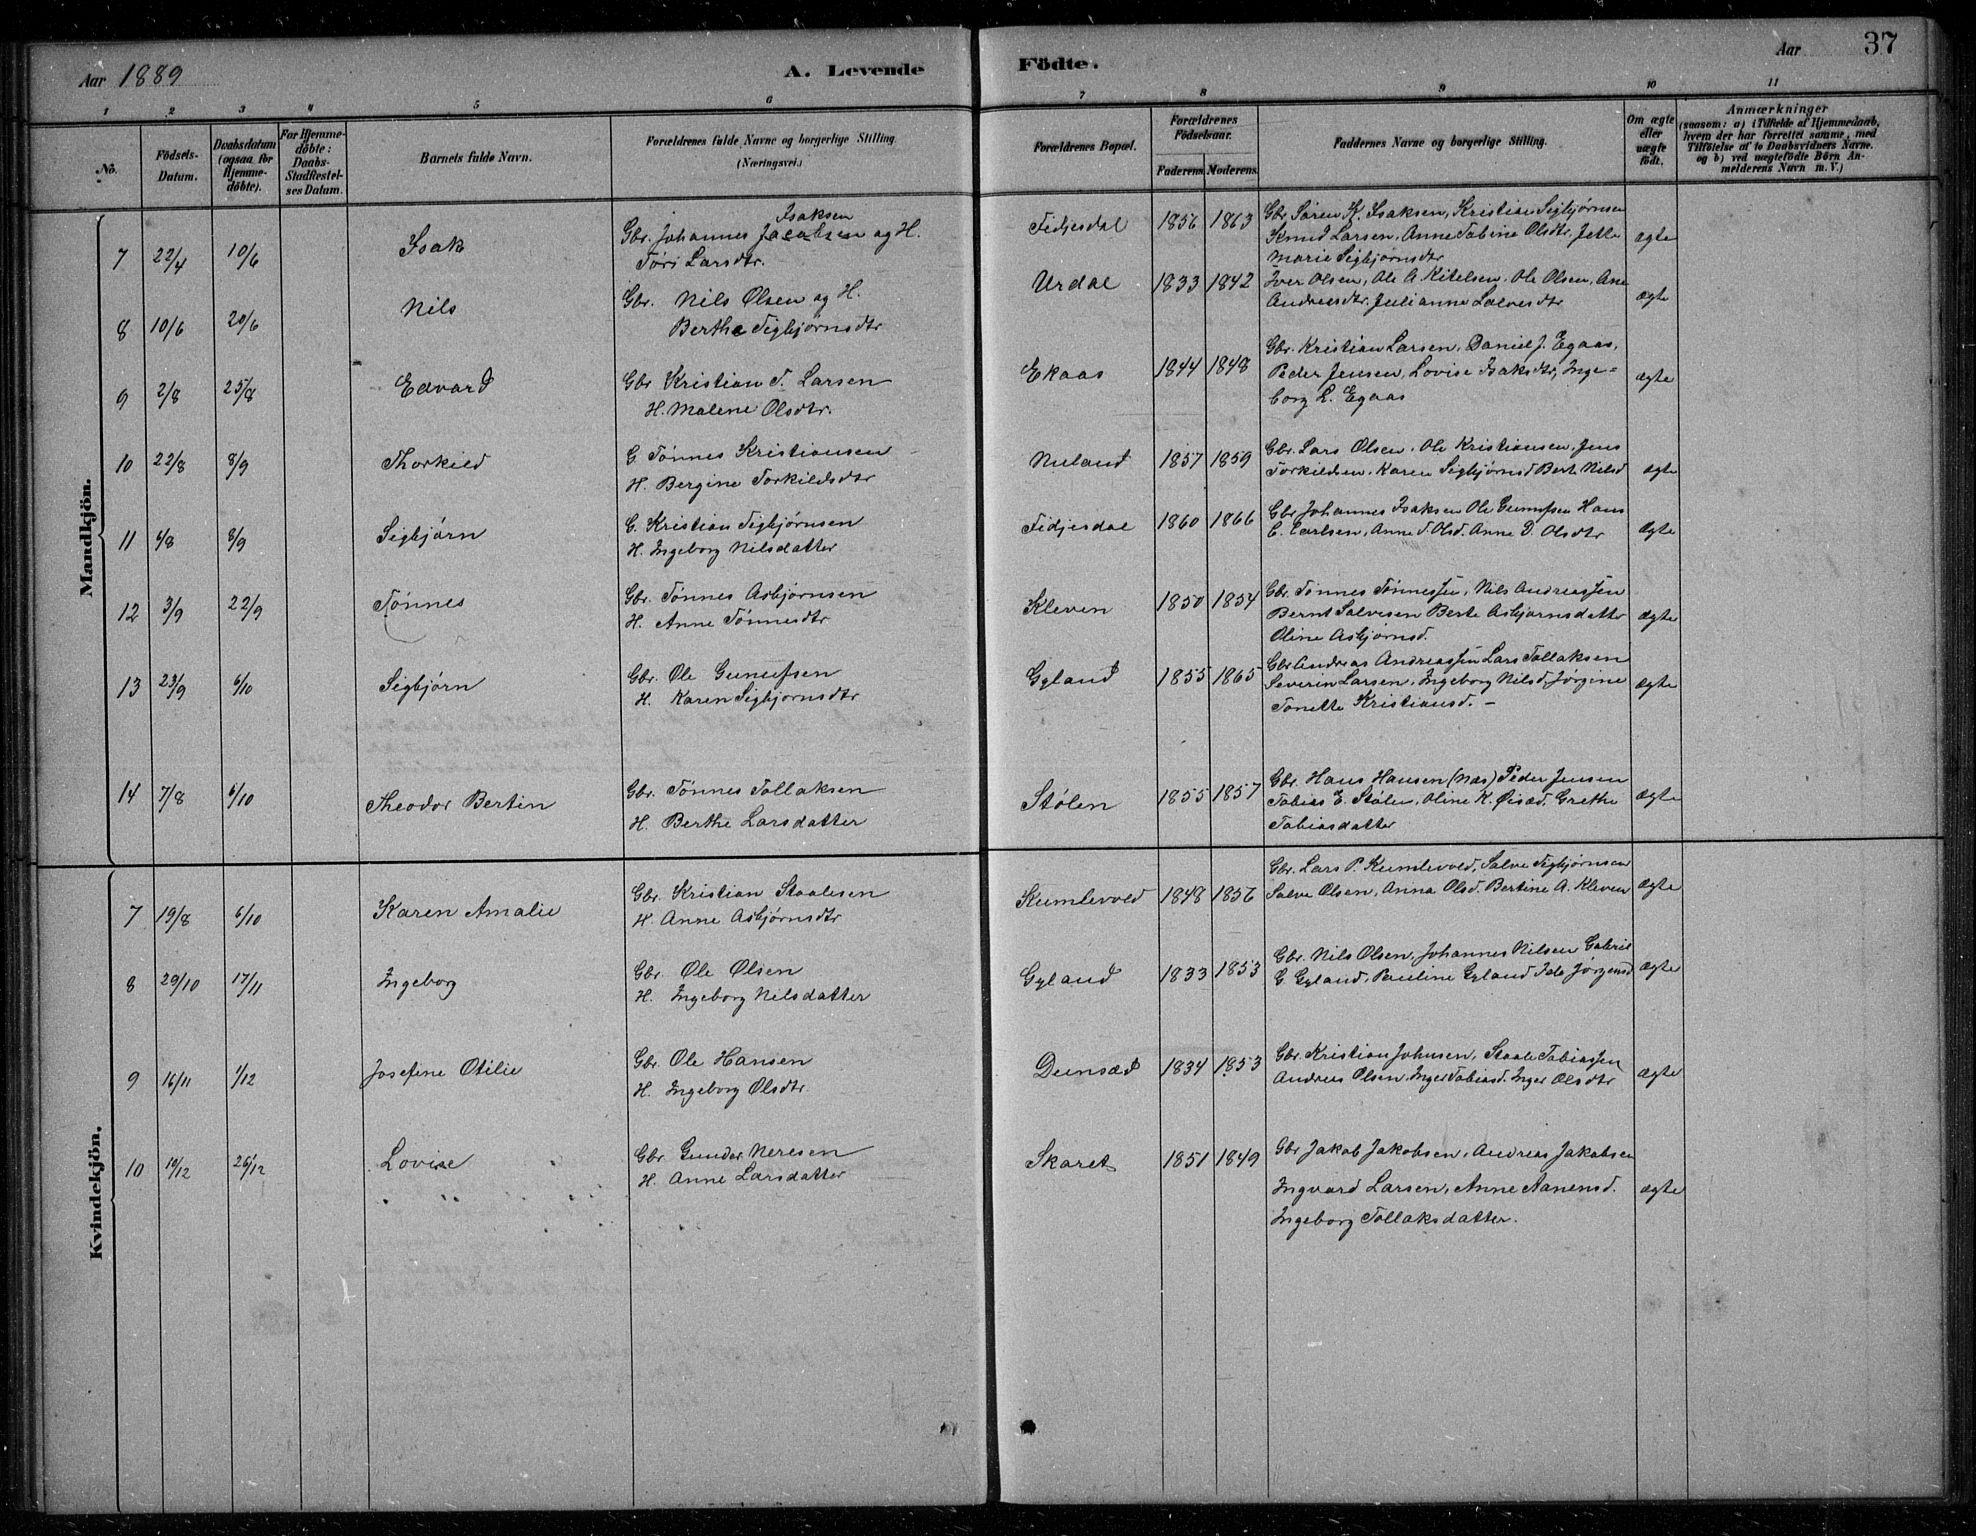 Aar 1889
A. Levende
Födte.
Aar
37
1 2 3 4 5 6 7 8 9 10 11
No.
Födsels-
Datum.
Daabsdatum
(ogsaa for
Hjemme-
döbte).
For Hjemme-
döbte:
Daabs-
Stadfestel-
ses Datum.
Barnets fulde Navn.
Forældrenes fulde Navne og borgerlige Stilling.
(Næringsvei.)
Forældrenes Bopæl.
Forældrenes
Födselsaar.
Faderens. Moderens.
Faddernes Navne og borgerlige Stilling.
Om ægte
eller
uægte
födt.
Anmærkninger
(saasom: a) i Tilfælde af Hjemmedaab,
hvem der har forrettet samme, med
Tilföielse af to Daabsvidners Navne.
og b) ved uægtefödte Börn An-
melderens Navn m. V.)
Mandkjön.
7 22/4 10/6 Isak
Isaksen
Gbr. Johannes Jacobsen og H.
Töri Larsdtr.
Fidjesdal 1856 1863
Gbr. Sören K. Isaksen, Kristian Sigbjörnsen
Knud Larsen, Anne Tabine Olsdtr, Jette
Marie Sigbjörnsdtr
ægte
8 10/6 20/6 Nils
Gbr. Nils Olsen og H.
Berthe Sigbjörnsdtr
Urdal 1833 1842
Iver Olsen, Ole A. Kitelsen, Ole Olsen, Ane
Andreasdtr. Julianne Salvesdtr
ægte
9 2/8 25/8 Edvard
Gbr Kristian T. Larsen
H. Malene Olsdtr.
Ekaas 1844 1848
Gbr. Kristian Larsen, Daniel J. Egaas,
Peder Jensen, Lovise Isaksdtr, Inge-
borg L. Egaas
ægte
10 22/8 8/9 Thorkild
G. Tönnes Kristiansen
H. Bergine Torkildsdtr
Nuland 1857 1859
Gbr. Lars Olsen, Ole Kristiansen, Jens
Torkildsen, Karen Sigbjörnsd Bert. Nilsd
ægte
11 4/8 8/9 Sigbjörn
G. Kristian Sigbjörnsen
H. Ingeborg Nilsdatter
Fidjesdal 1860 1866
Gbr Johannes Isaksen Ole Gunufsen Hans
C. Carlsen, Anne T. Olsd. Anne D. Olsdtr
ægte
12 3/9 22/9 Tönnes
Gbr. Tönnes Asbjörnsen
H. Anne Tönnesdtr
Kleven 1850 1854
Gbr. Tönnes Tönnessen, Nils Andreassen
Bernt Salvesen Berte Asbjörnsdatter
Oline Asbjörnsd.
ægte
13 23/9 6/10 Sigbjörn
Gbr. Ole Gunufsen
H. Karen Sigbjörnsdtr
Gyland 1855 1865
Gbr Andreas Andreassen Lars Tollaksen
Severin Larsen, Ingeborg Nilsd, Jörgine
Tonette Kristiansd. -
ægte
14 7/8 6/10 Theodor Bertin
Gbr. Tönnes Tollaksen
H. Berthe Larsdatter
Stölen 1855 1857
Gbr. Hans Hansen (Næs) Peder Jensen
Tobias E. Stölen, Oline K. Öisæd, Grethe
Tobiasdatter
ægte
Kvindekjön.
7 19/8 6/10 Karen Amalie
Gbr. Kristian Staalesen
H. Anne Asbjörnsdtr
Kumlevold 1848 1856
Gbr. Lars P. Kumlevold, Salve Sigbjörnsen
Salve Olsen, Anna Olsd. Bertine A. Kleven
ægte
8 29/10 17/11 Ingeborg
Gbr. Ole Olsen
H. Ingeborg Nilsdatter
Gyland 1833 1853
Gbr. Nils Olsen, Johannes Nilsen Gabriel
G. Gyland, Pauline Gyland Ida Jörgensd
ægte
9 16/11 1/12 Josefine Otilie
Gbr. Ole Hansen
H. Ingeborg Olsdtr
Dunsæd 1834 1853
Gbr. Kristian Johnsen, Staale Tobiassen
Andreas Olsen, Inger Tobiasd. Inger Olsdtr
ægte
10 19/12 26/12 Lovise
Gbr Gunder Neresen
H. Anne Larsdatter
Skaret 1851 1849
Gbr Jakob Jakobsen, Andreas Jakobsen
Ingvard Larsen, Anne Aanensd.
Ingeborg Tollaksdatter.
ægte